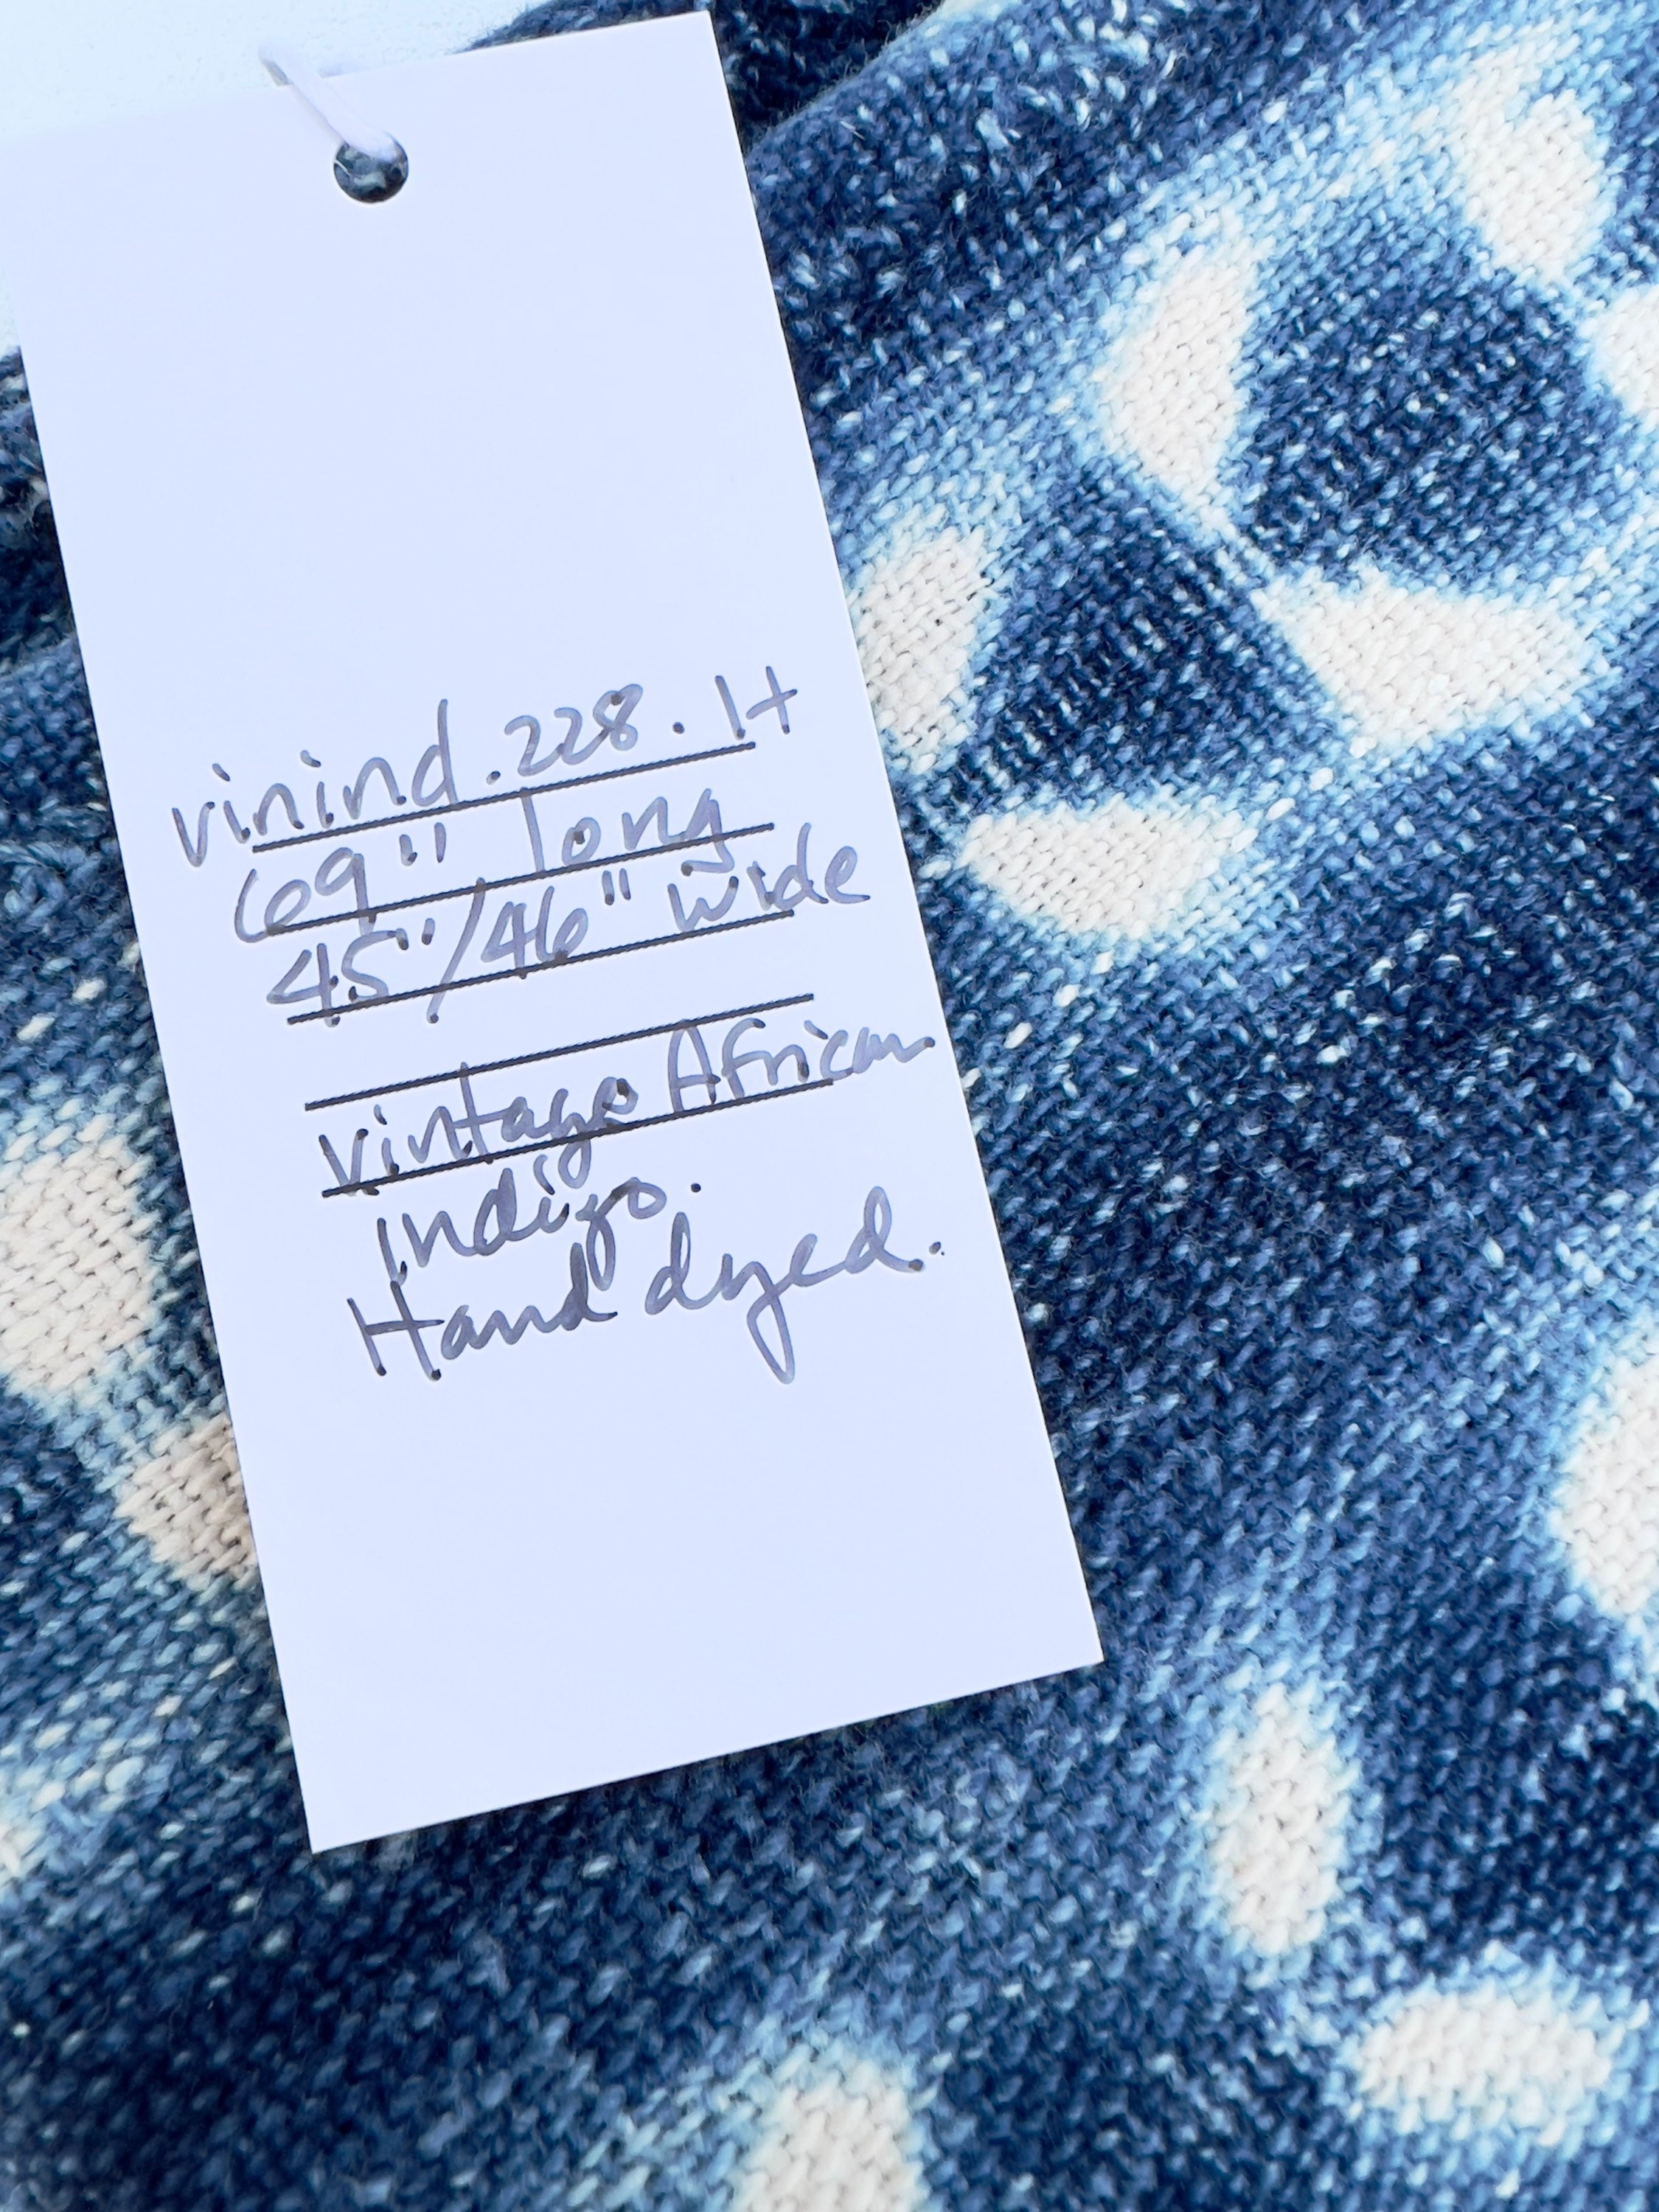 vinind.228.1t
69" long
45"/46" wide
vintage African
indigo.
Hand dyed.